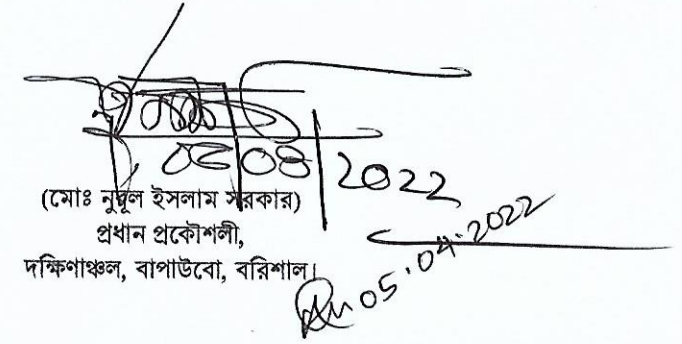 ০৫/০৪/২০২২
(মোঃ নুরুল ইসলাম সরকার)
প্রধান প্রকৌশলী,
দক্ষিণাঞ্চল, বাপাউবো, বরিশাল।
05.04.2022